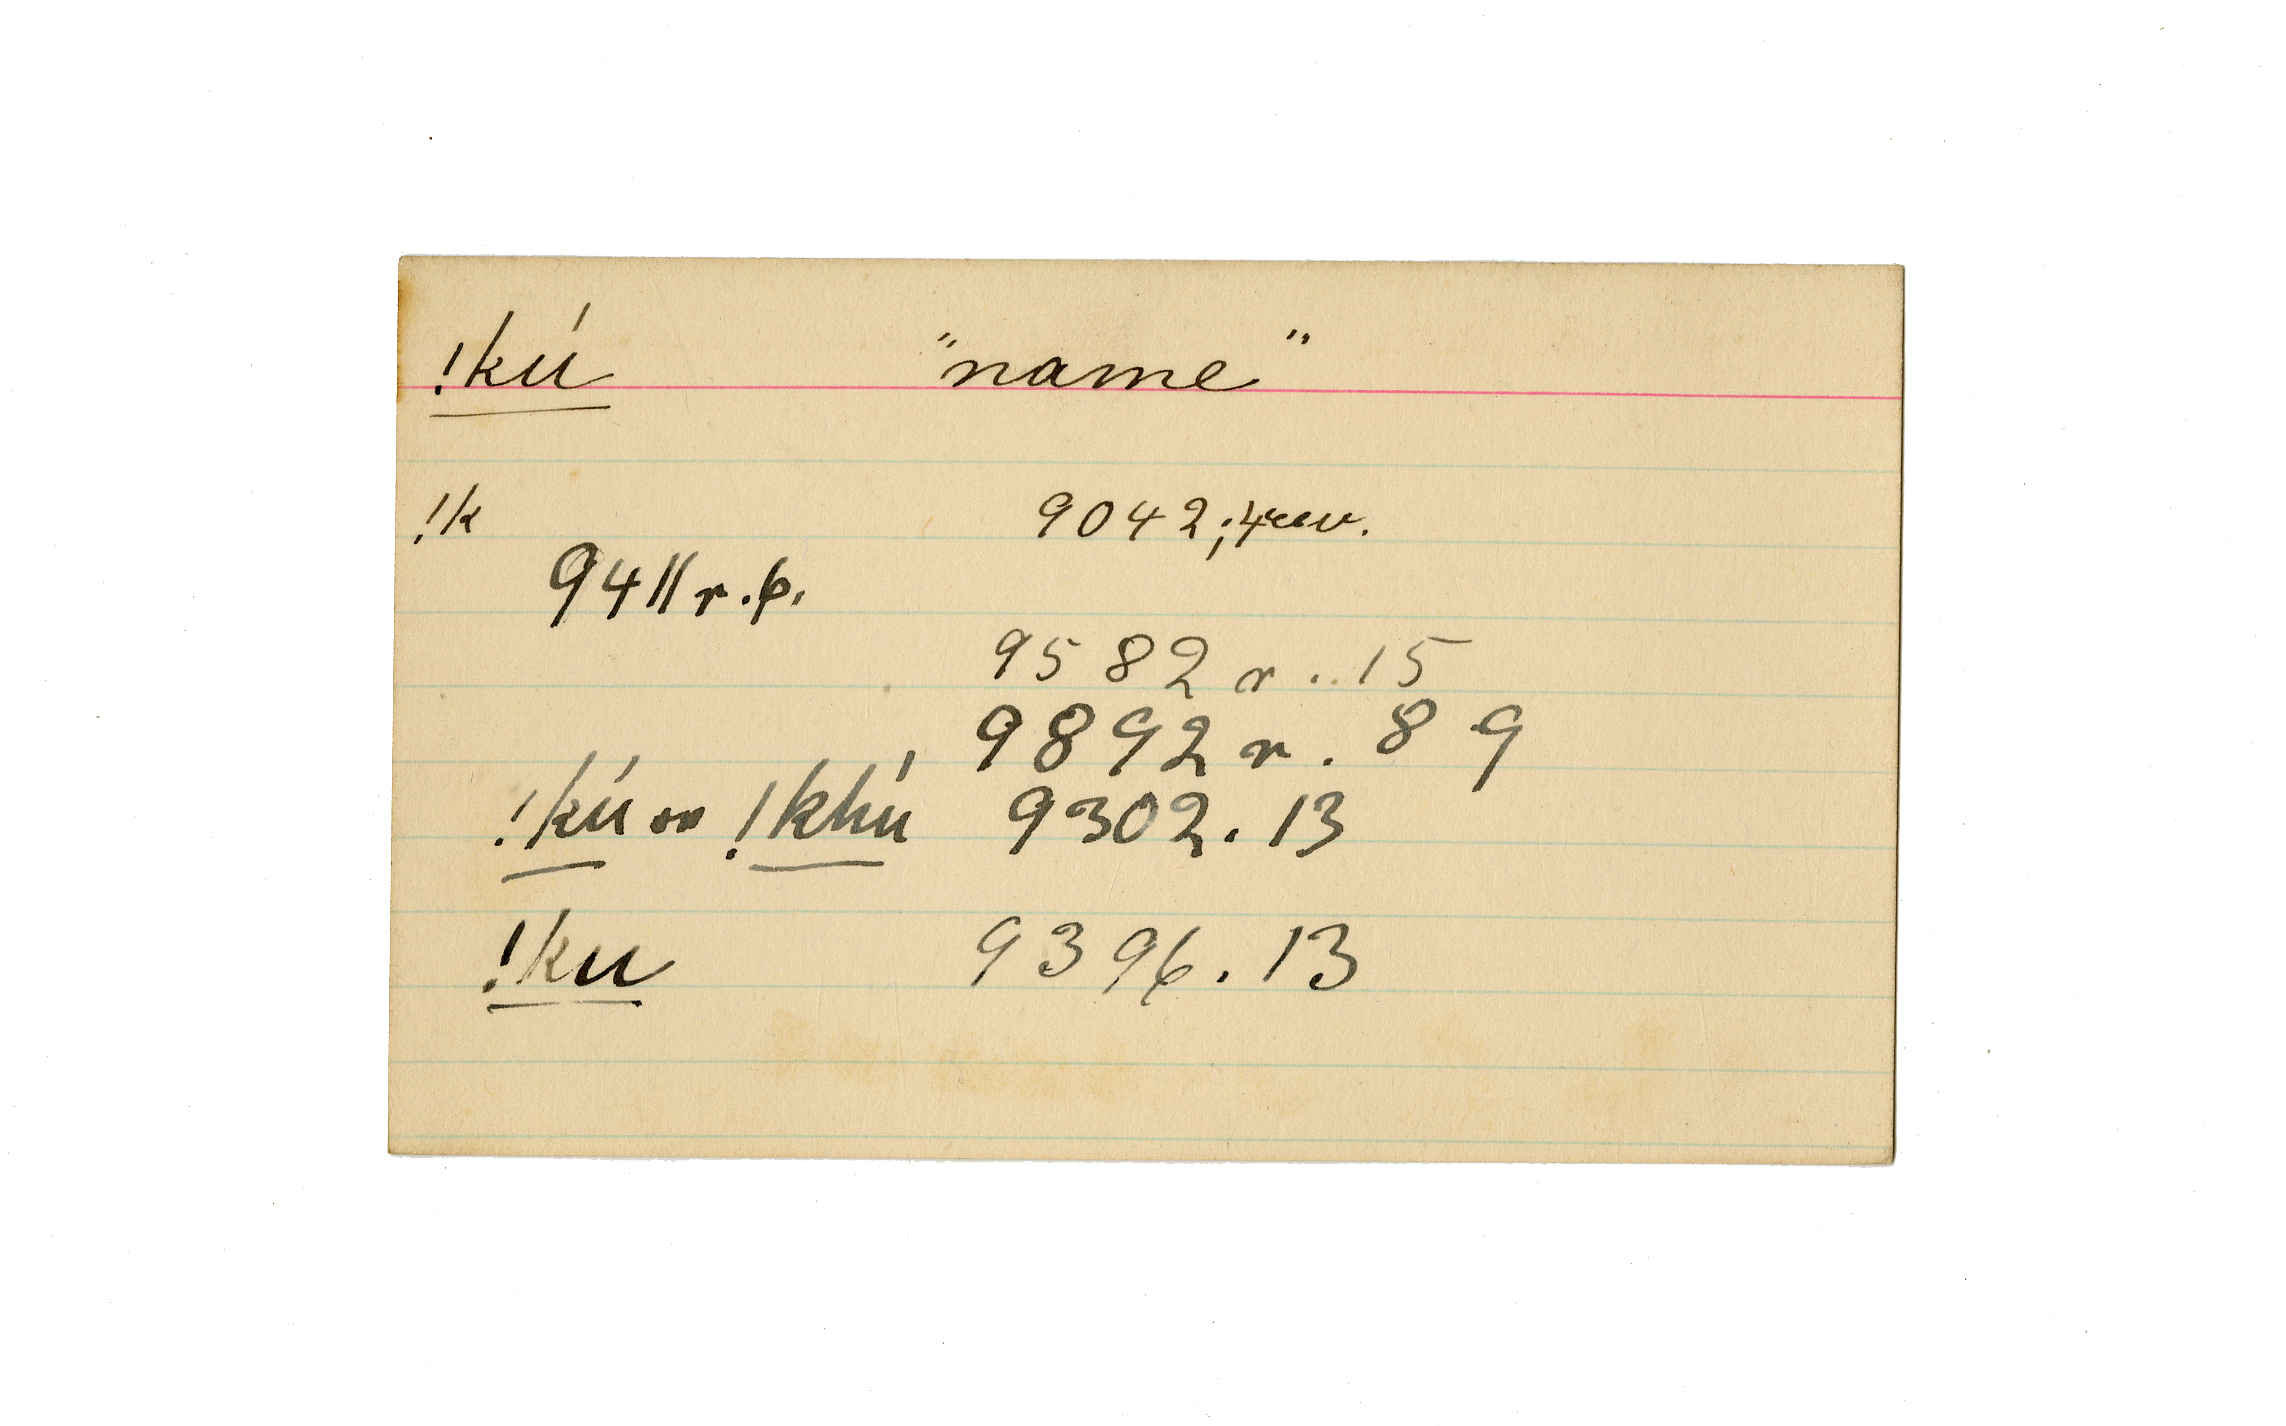 !kú "name"
!k 9042; 4rev.
9411 r. 6.
9582 r. . 15
9892 r. 8 9
!kú or !khú 9302. 13
!ku 9396. 13